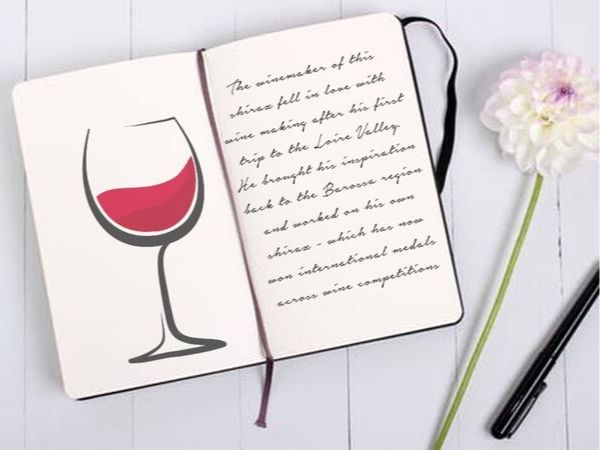 The winemaker of this
shiraz fell in love with
wine making after his first
trip to the Loire Valley.
He brought his inspiration
back to the Barossa region
and worked on his own
shiraz - which has now
won international medals
across wine competitions